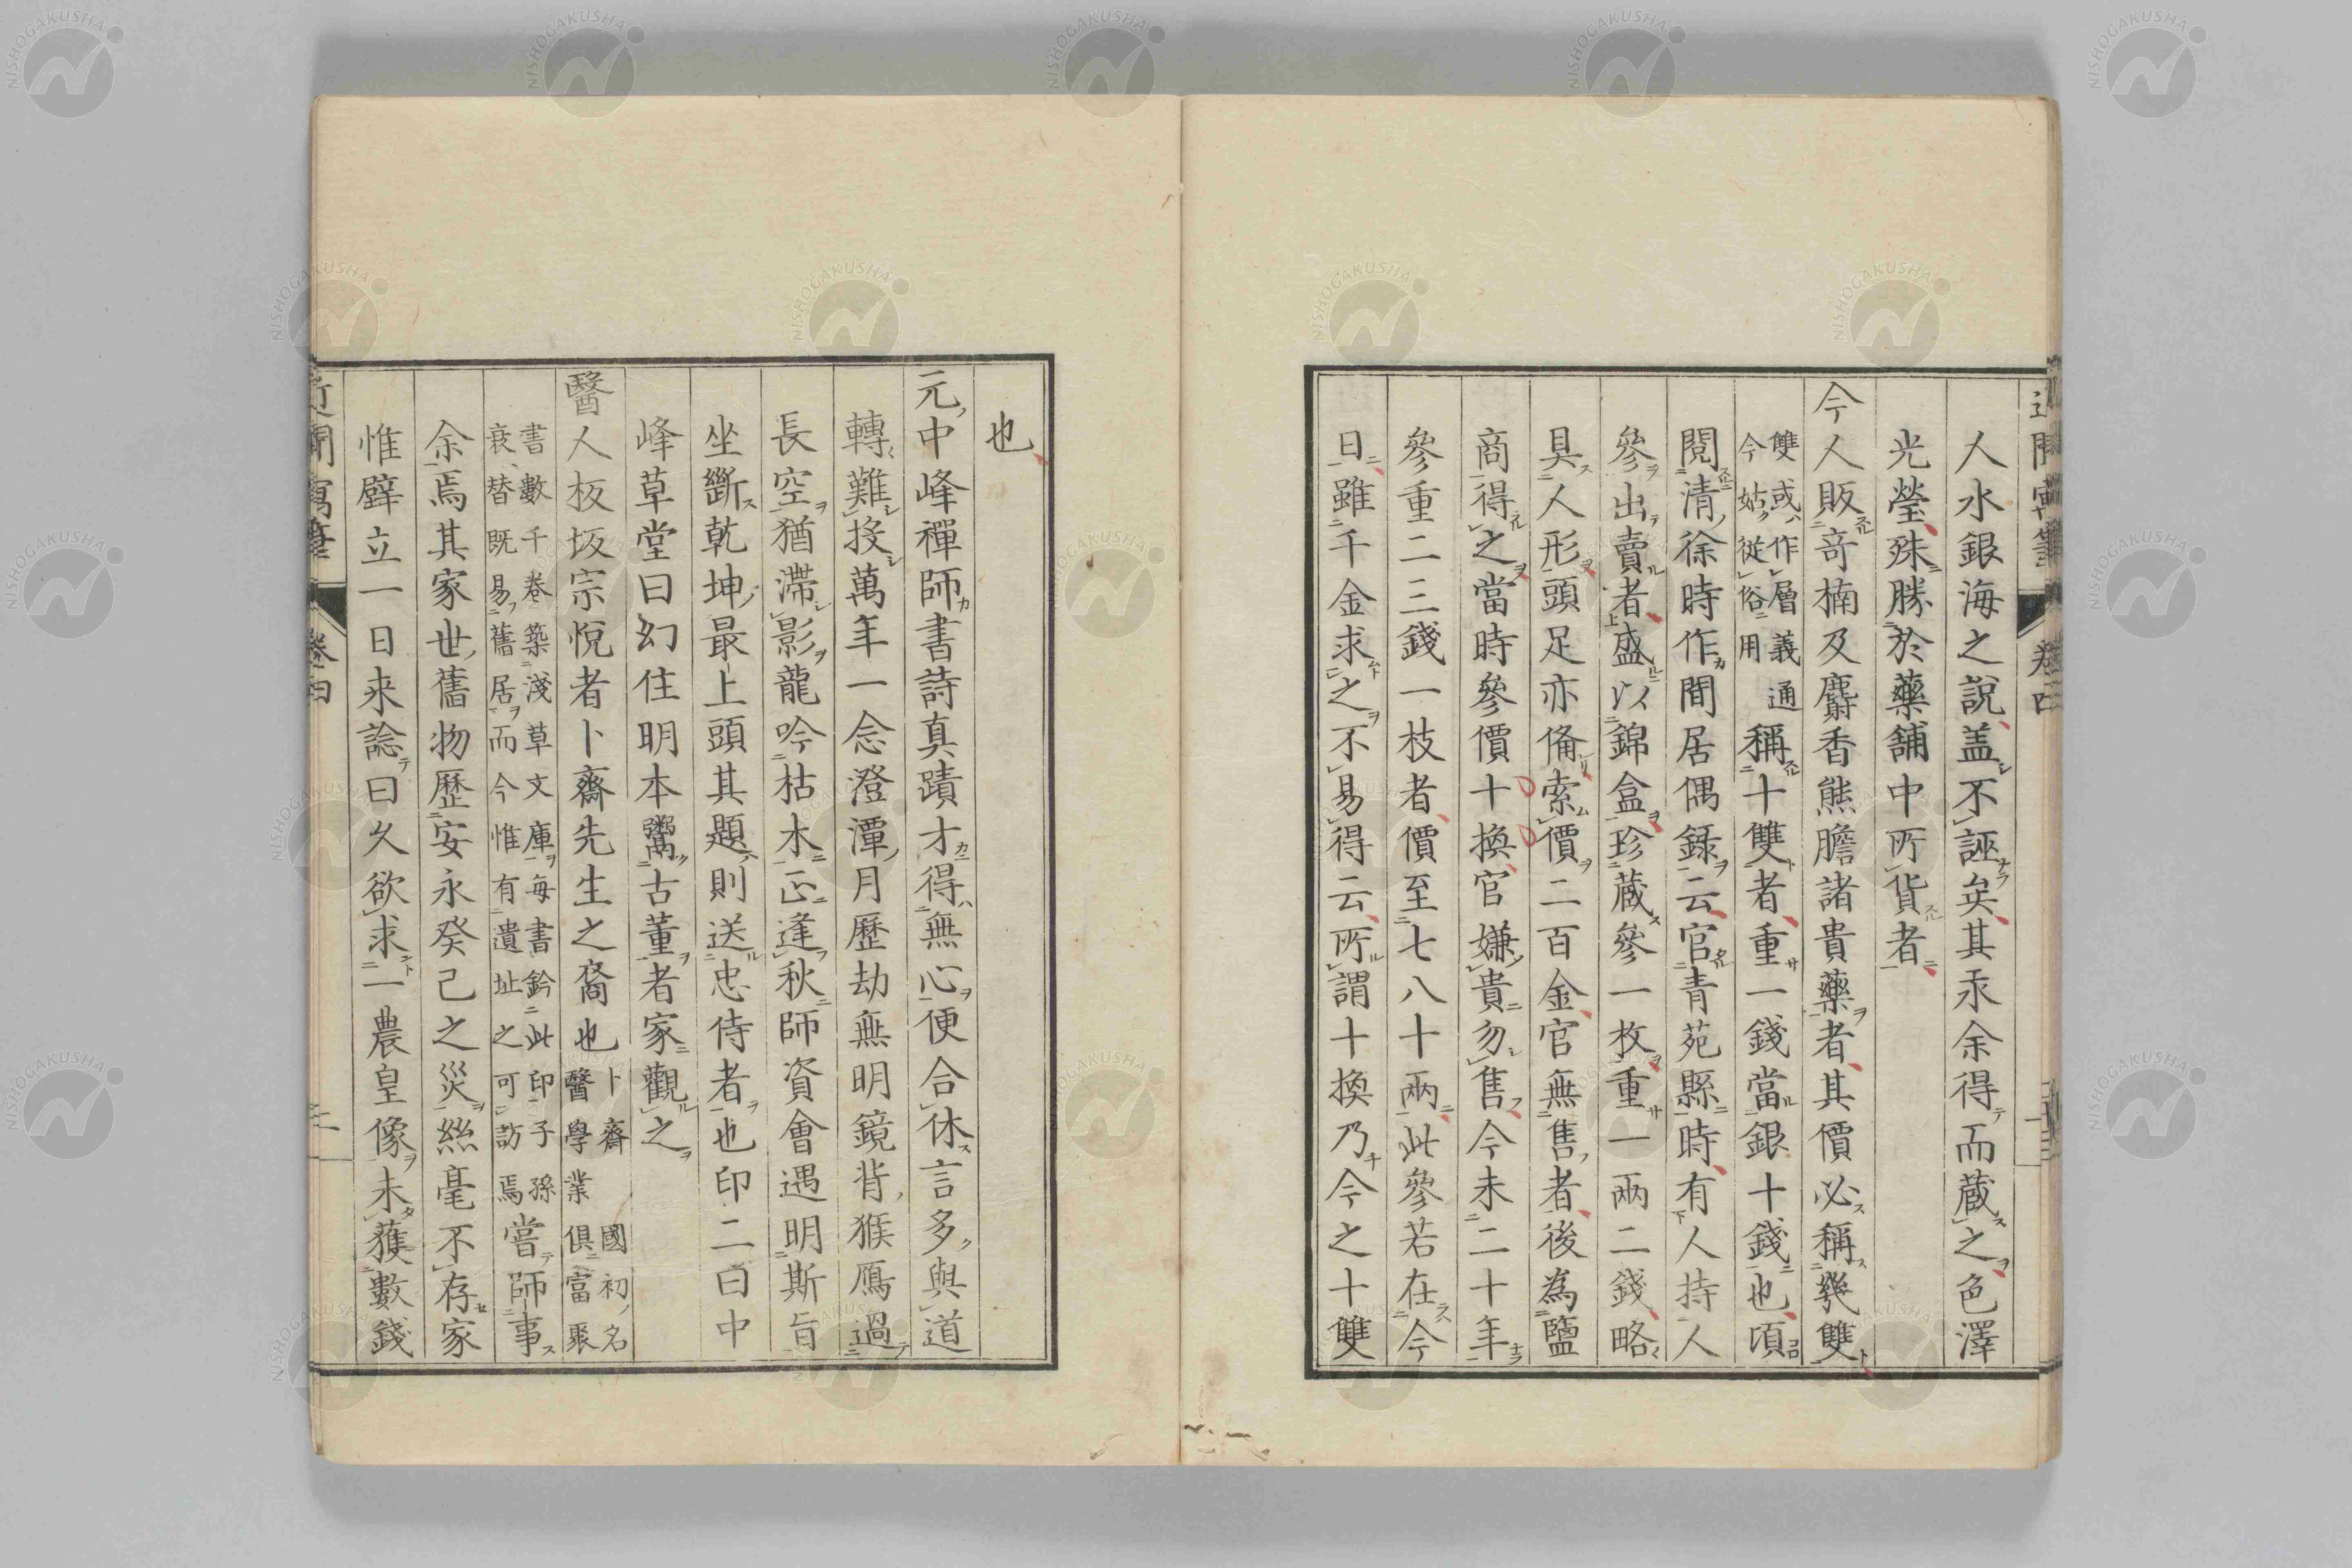 人水銀海之說盖不誣矣其汞余得而蔵之色澤
光瑩殊勝於藥舖中所貨者
今人販奇楠及麝香熊膽諸貴藥者其價必稱幾雙
雙或作層義通
今姑從俗用
稱十雙者重一錢當銀十錢也頃
閱清徐時作閒居偶錄云官青苑縣時有人持人
參出賣者盛以錦盒珍蔵參一枚重一兩二錢略
具人形頭足亦俻索價二百金官無售者後為鹽
商得之當時參價十換官嫌貴勿售今未二十年
參重二三錢一枝者價至七八十兩此參若在今
日雖千金求之不易得云所謂十換乃今之十雙
也
元中峰禪師書詩真蹟才得無心便合休言多與道
轉難投萬年一念澄潭月歷劫無明鏡背猴鴈過
長空猶滯影龍吟枯木正逢秋師資會遇明斯旨
坐斷乾坤最上頭其題則送忠侍者也印二曰中
峰草堂曰幻住明本鬻古董者家觀之
醫人板坂宗悅者卜齋先生之裔也
卜齋國初名
醫學業俱富聚
書數千卷築淺草文庫每書鈐此印子孫
衰替既易舊居而今惟有遺址之可訪焉
嘗師事
余焉其家世舊物歷安永癸己之災絲毫不存家
惟壁立一日来諗曰久欲求一農皇像未獲數錢
近聞寓筆
卷四